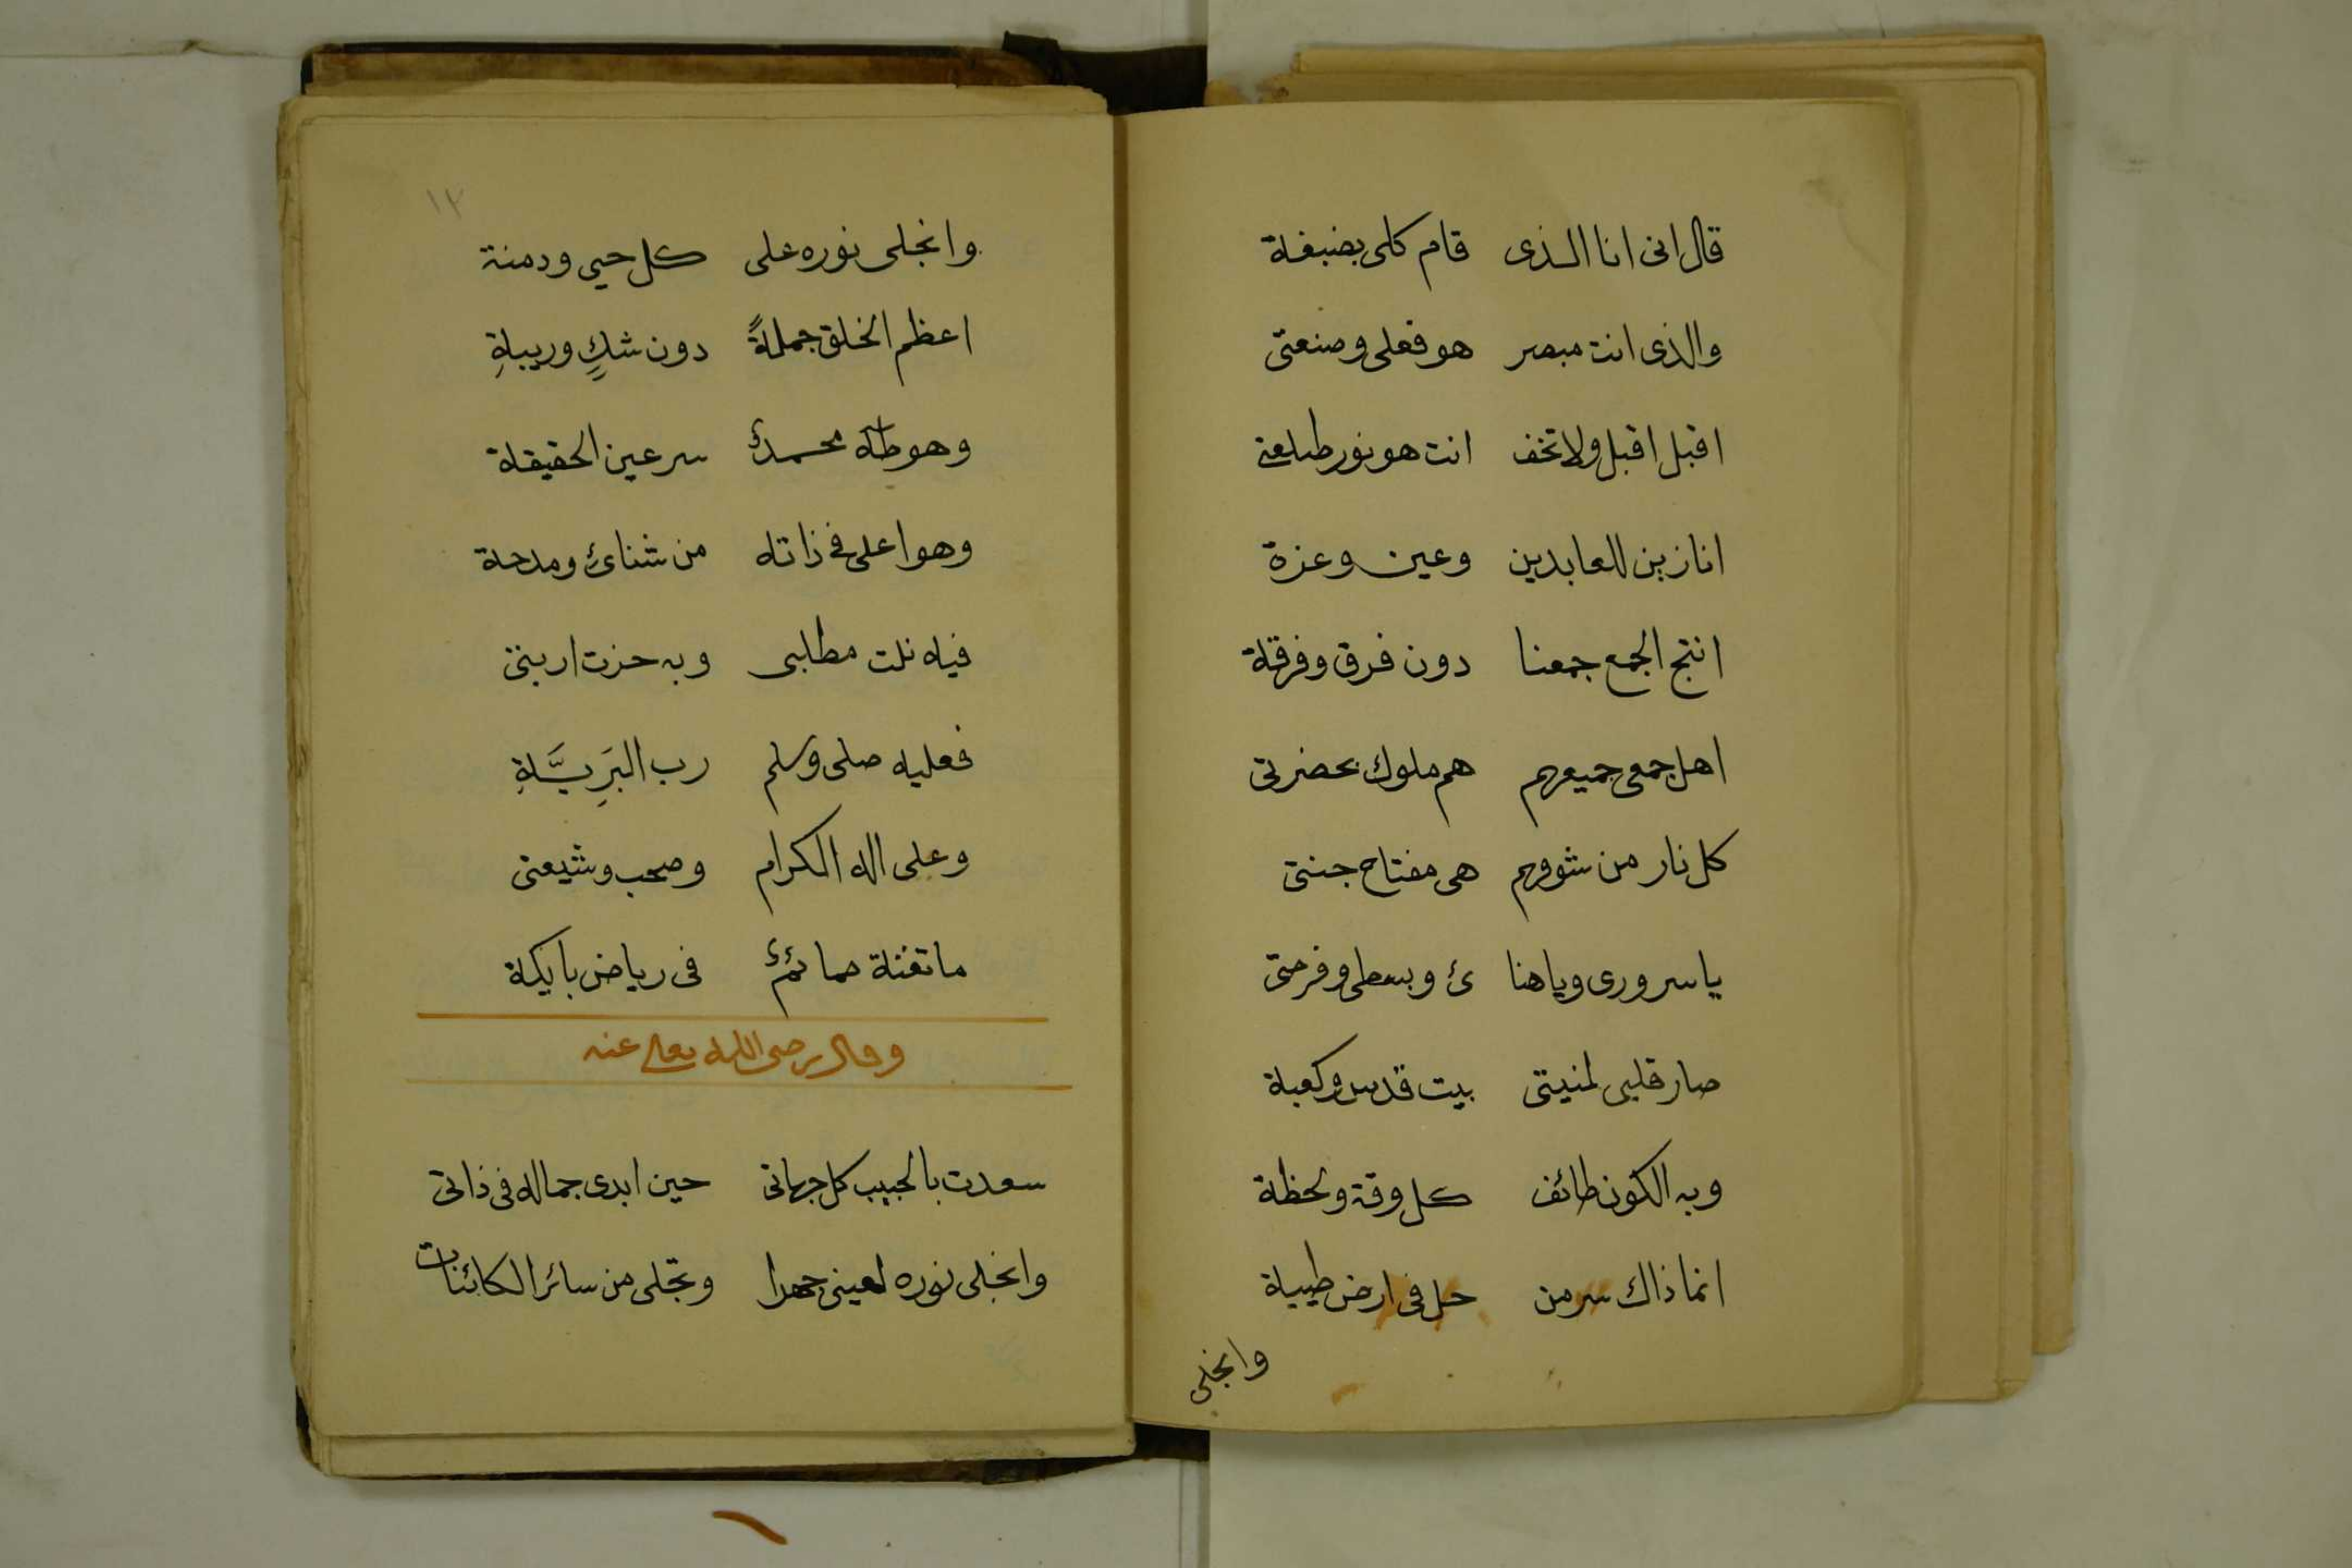 قال انى انا الذى قام كلى بضبغة
والذى انت مبصر هو فعلى وصنعتى
اقبل اقبل ولا تخف انت هو نور طلعتى
انا زين للعابدين وعين وعزة
انتج الجمع جمعنا دون فرق وفرقة
اهل جمعى جميعهم هم ملوك بحضرتى
كل نار من شوقهم هى مفتاح جنتى
يا سرورى ويا هنا ئ وبسطى وفرحتى
صار قلبى لمنيتى بيت قدس وكعبة
وبه الكون طائف كل وقة ولحظة
انما ذاك سر من حل فى ارض طيبة
وانجلى
١٢
وانجلى نوره على كل حيى ودمنة
اعظم الخلق جملةً دون شكٍ وريبةِ
وهو طٰه محمدٌ سر عين الحقيقة
وهو اعلى فى ذاته من ثنائ ومدحة
فيه نلت مطالبى وبه حزت اربتى
فعليه صلى وسلم رب البَرِيَّةِ
وعلى اله الكرام وصحب وشيعتى
ما تغنة حمائمٌ فى رياض بايكة
وقال رضى الله تعالى عنه
سعدت بالحبيب كل جهاتى حين ابدى جماله فى ذاتى
وانجلى نوره لعينى جهرا وتجلى من سائر الكائنات